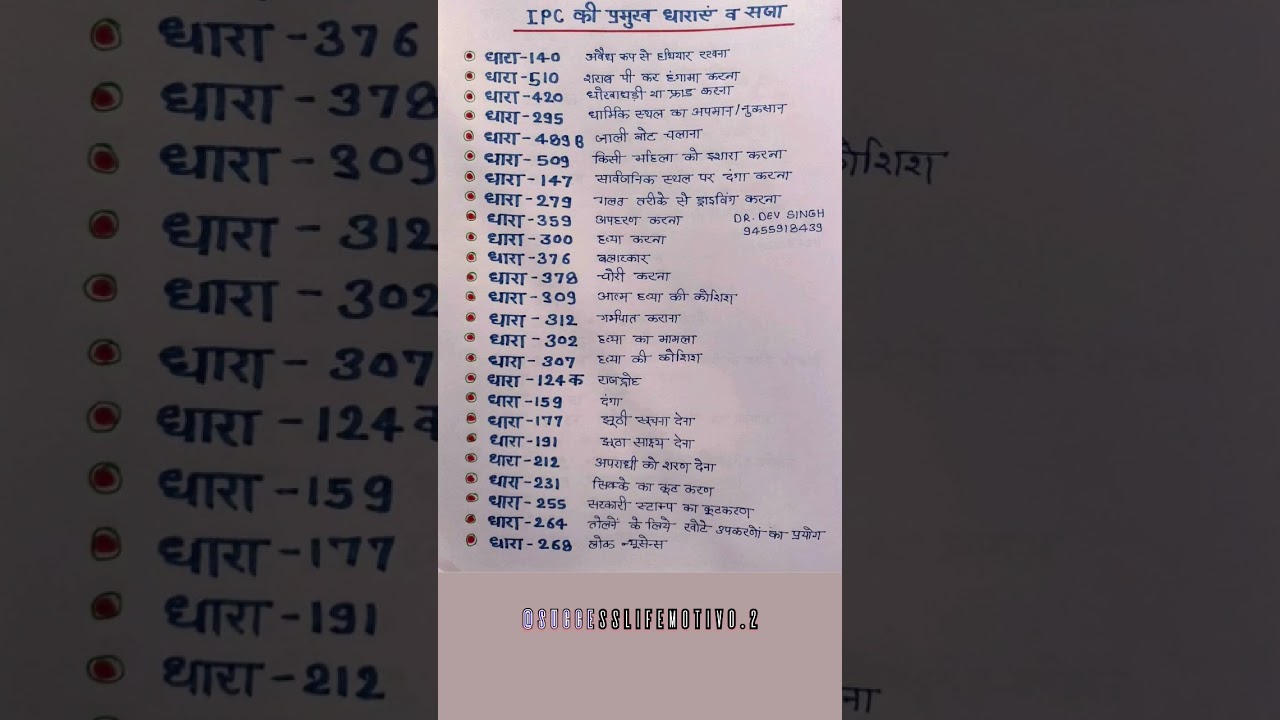 IPC की प्रमुख धाराएं व सजा
धारा-140 अवैध रूप से हथियार रखना
धारा-510 शराब पी कर हंगामा करना
धारा-420 धोखाधड़ी या फ्राड करना
धारा-295 धार्मिक स्थल का अपमान/नुकसान
धारा-489B जाली नोट चलाना
धारा-509 किसी महिला को इशारा करना
धारा-147 सार्वजनिक स्थल पर दंगा करना
धारा-279 गलत तरीके से ड्राइविंग करना
धारा-359 अपहरण करना
DR. DEV SINGH
9455918439
धारा-300 हत्या करना
धारा-376 बलात्कार
धारा-378 चोरी करना
धारा-309 आत्म हत्या की कोशिश
धारा-312 गर्भपात कराना
धारा-302 हत्या का मामला
धारा-307 हत्या की कोशिश
धारा-124क राजद्रोह
धारा-159 दंगा
धारा-177 झूठी सूचना देना
धारा-191 झूठा साक्ष्य देना
धारा-212 अपराधी को शरण देना
धारा-231 सिक्के का कूट करण
धारा-255 सरकारी स्टाम्प का कूटकरण
धारा-264 तोलने के लिये खोटे उपकरणों का प्रयोग
धारा-268 लोक न्यूसेन्स
@SUCCESSLIFEMOTIVO.2
धारा-376
धारा-378
धारा-309
कोशिश
धारा-312
धारा-302
धारा-307
धारा-124क
धारा-159
धारा-177
धारा-191
धारा-212
ना